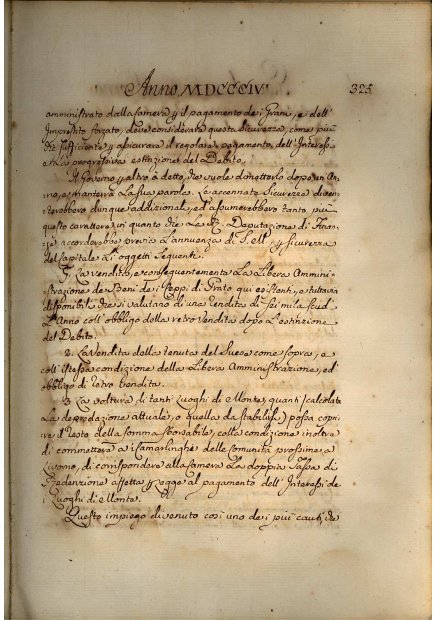 Anno MDCCCIV 325
amministrato dalla Camera p il pagamento dei Frani, e dell'
Imprestito forzato, deve considerare questa sicurezza, come più
che sufficiente p assicurare il regolare pagamento dell'Interesse
e La progressiva estinzione del Debito.
Il Governo p altro à detto, che vuole dimetterlo dopo un An-
no, e manterrà La sua parola. Le accennate Sicurezze diven-
terebbero dunque addizionali, ed assumerebbero tanto più
questo carattere, in quanto che La R. Deputazione di Finan-
ze accorderebbe previa L'annuenza di S. M. p sicurezza
del Capitale Li oggetti seguenti.
1. La vendita, e conseguentemente La Libera Ammini-
strazione de Beni de' Ceppi di Prato qui esistenti, e tuttavia
disponibili che si valutano di una rendita di Sei mila scudi
L'Anno coll'obbligo della retrovendita dopo L'estinzione
del Debito.
2. La Vendita della tenuta del Suese come sopra, e
coll'istessa condizione della Libera Amministrazione, ed
obbligo di retro vendita.
3. La voltura di tanti Luoghi di Monte, quanti (calcolata
La depredazione attuale, o quella da stabilirsi) possa copri-
re il resto della somma sborsabile, colla condizione inoltre
di commettere a i Camarlinghi delle Comunità prossime a
Livorno, di corrispondere alla Camera La doppia Tassa di
Redenzione affetta p Legge al pagamento dell'Interessi de
i Luoghi di Monte.
Questo impiego divenuto così uno de i più cauti, che